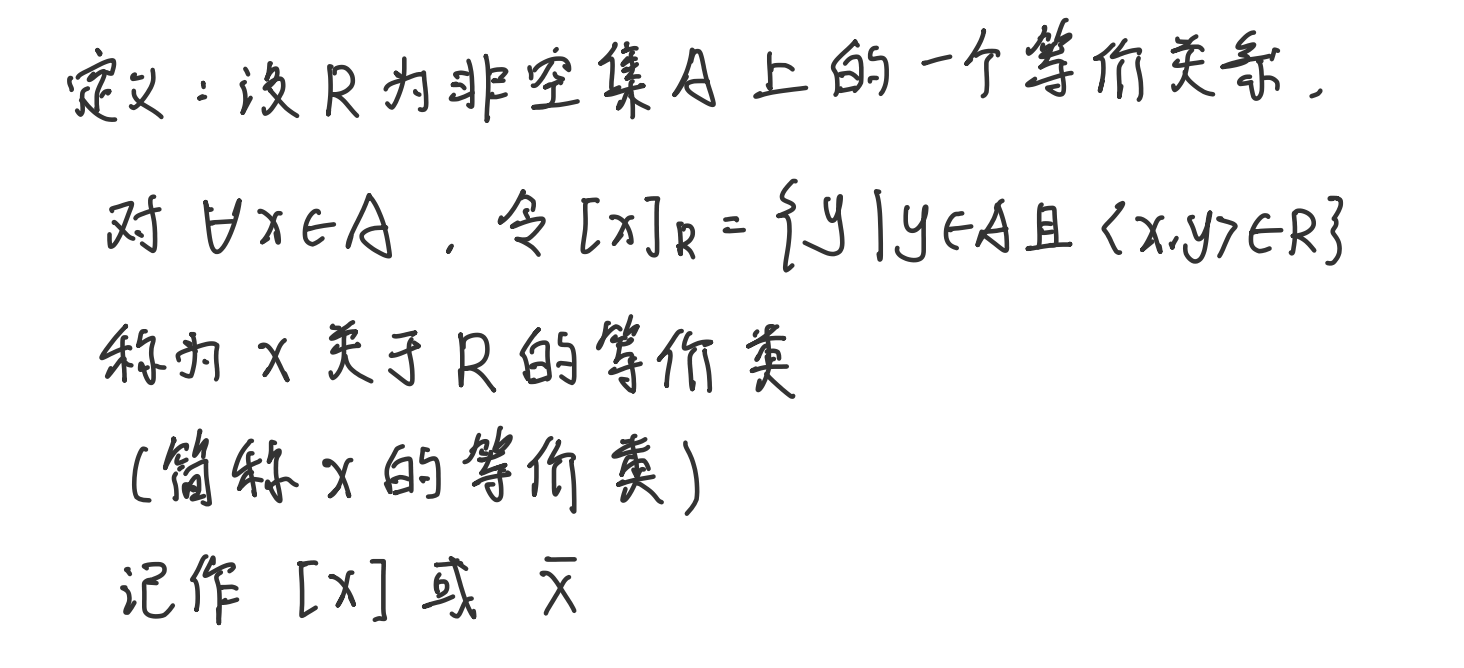 定义：设 R 为非空集 A 上的一个等价关系，
对 ∀x∈A ，令 [x]R = {y|y∈A且<x,y>∈R}
称为 x 关于 R 的等价类
(简称 x 的等价类)
记作 [x] 或 x̄